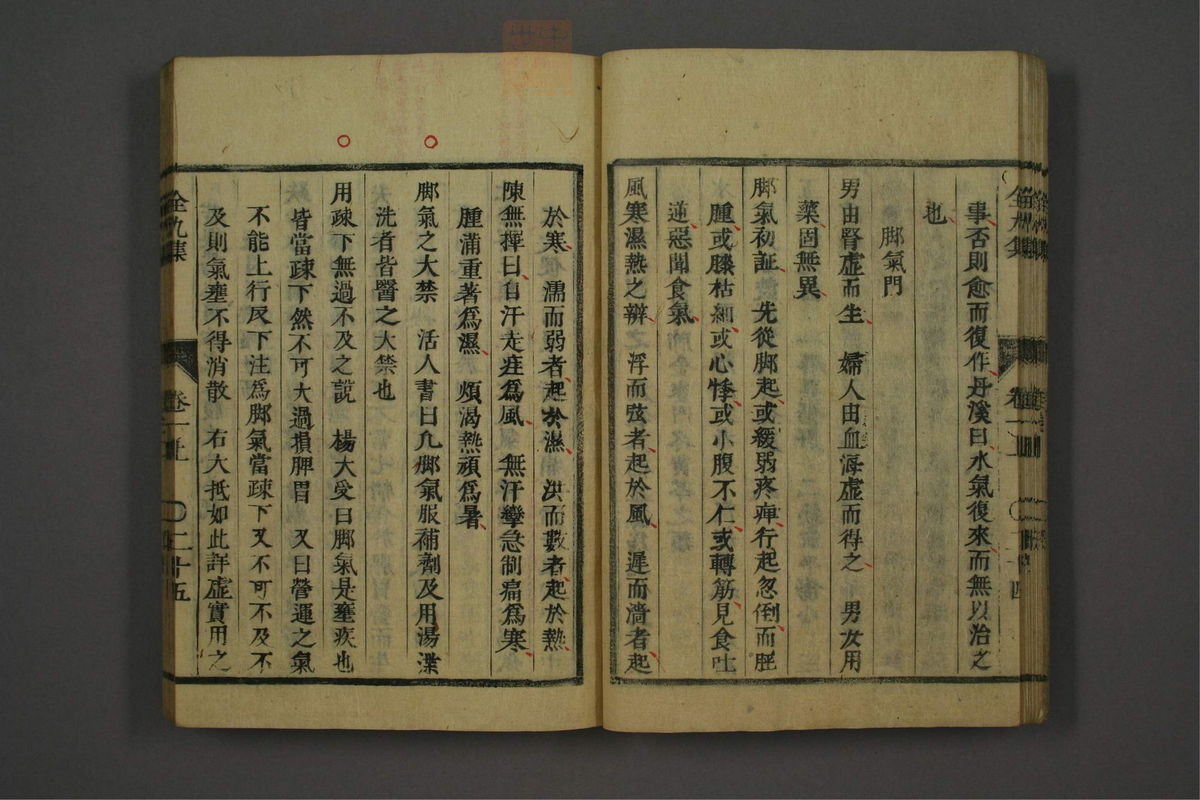 事否則愈而復作丹溪曰水氣復來而無以治之
也
脚氣門
男由腎虛而生　婦人由血海虛而得之　男女用
藥固無異
脚氣初証　先從脚起或緩弱疼痺行起忽倒而脛
腫或膝枯細或心悸或小腹不仁或轉筋見食吐
逆惡聞食氣
風寒濕熱之辯　浮而弦者起於風　遲而濇者起
於寒　濡而弱者起於濕　洪而數者起於熱
陳無擇曰自汗走疰爲風　無汗攣急制痛爲寒
腫滿重著爲濕　煩渴熱頑爲暑
脚氣之大禁　活人書曰凡脚氣服補劑及用湯渫
洗者皆醫之大禁也
用疎下無過不及之説　楊大受曰脚氣是壅疾也
皆當疎下然不可大過損脾胃　又曰營運之氣
不能上行反下注爲脚氣當疎下又不可不及不
及則氣壅不得消散　右大抵如此詳虛實用之
全九集
卷一上
二十五